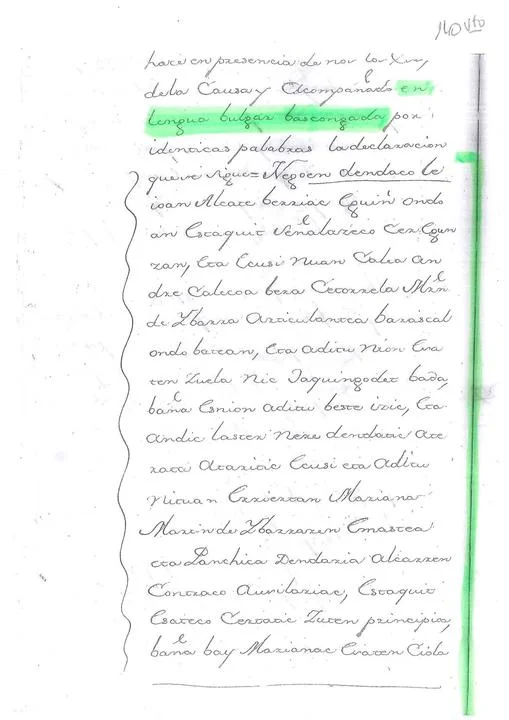 140 vto
hace en presencia de nos los
de la Causa y Acompañado en
lengua bulgar bascongada por
identicas palabras la declaracion
que se sigue= Negoen dendaco le
ioan Alcare berriac Eguin ondo
an Estaquit Señalareco Cer Egun
zan, Eta Ecusi nuan Calea an
dre Calecoa bera Cetorrela Mrn
de Ybarra Articulantea barascal
ondo batean, Eta aditu nion Era
ten Zuela nic Jaquingodet bada,
baña Esnion aditu beste izic, Eta
andic laster nere dendatic Ate
rata Atariric Ecusi eta Aditu
nituan Errierran Mariana
Marin de Ybarraren Emastea
eta Panchica Dendaria Alcarren
Contraco Aurilariac, Estaquit
Esateco Certatic Zuten principia,
baña bay Marianac Eraten Ciola